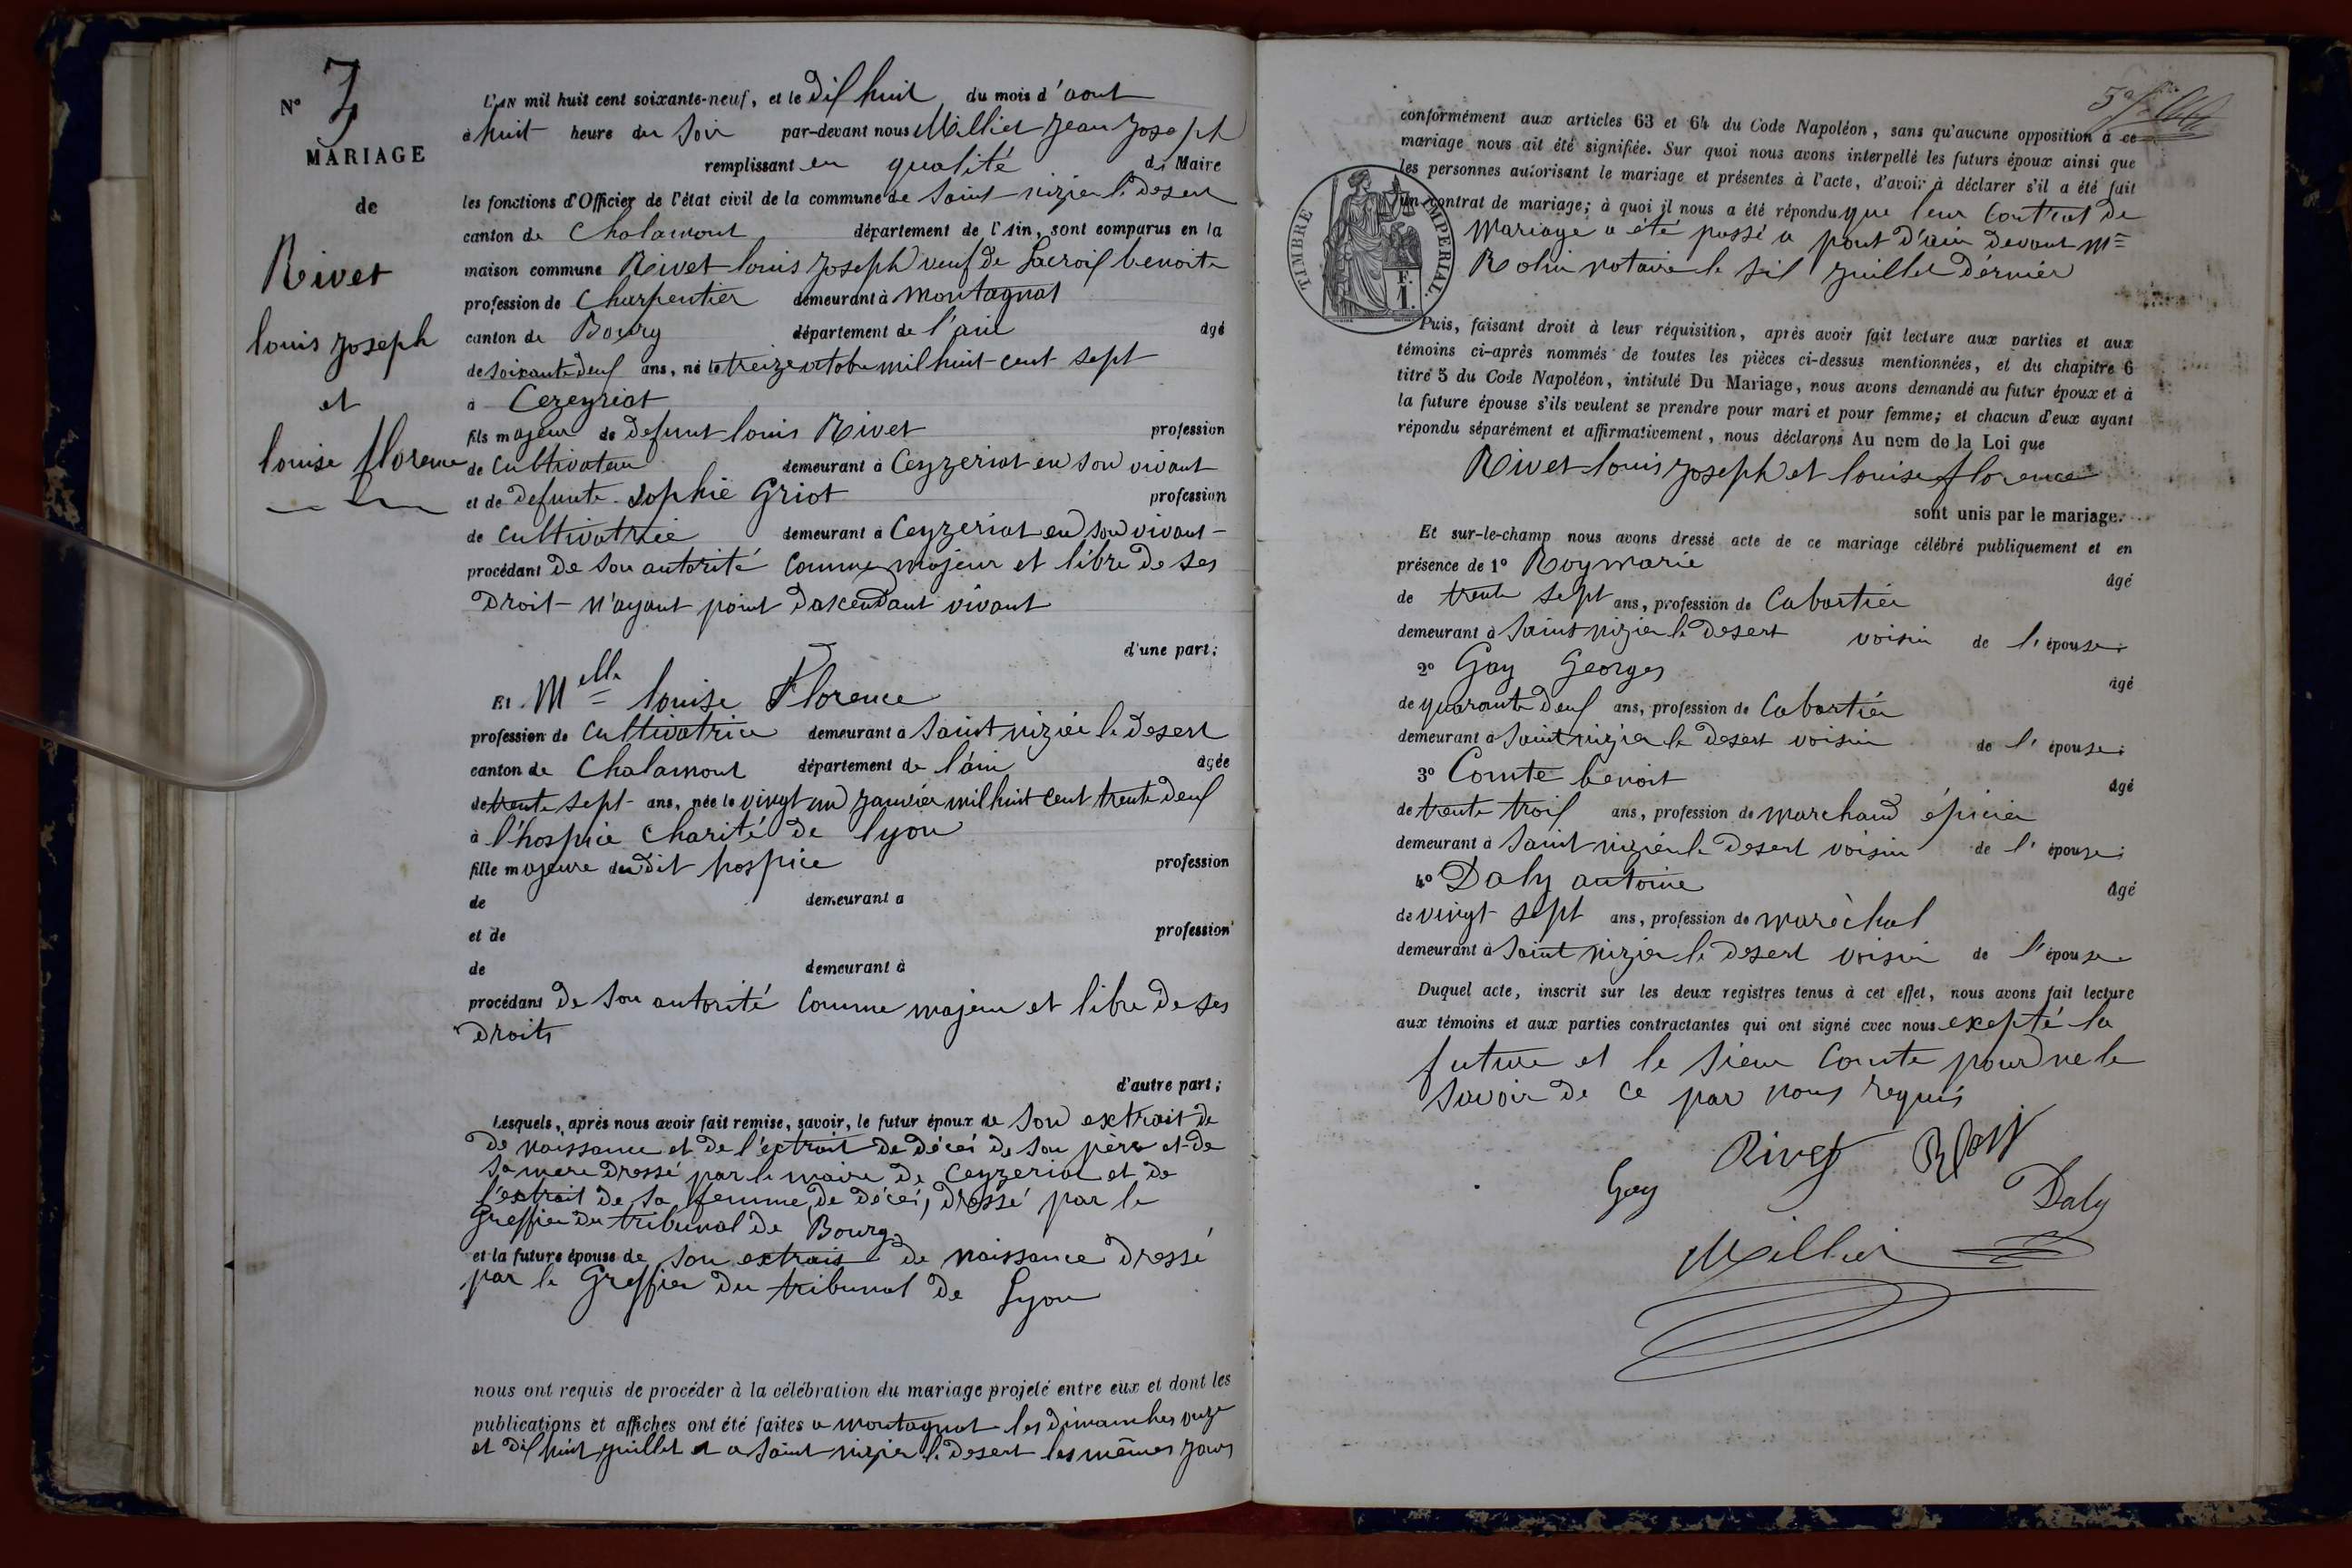 N° 7
MARIAGE
de
Rivet
louis joseph
et
louise florence
L'AN mil huit cent soixante-neuf, et le dix huit du mois d'aout
à huit heure du soir par-devant nous Milliet jean joseph
remplissant en qualité de Maire
les fonctions d'Officier de l'état civil de la commune de saint nizier le desert
canton de Chalamont département de l'Ain, sont comparus en la
maison commune Rivet louis joseph veuf de Lacroix benoite
profession de Charpentier demeurant à montagnat
canton de Bourg département de l'ain âgé
de soixante deux ans, né le treize octobre mil huit cent sept
à Cezeyriat
fils majeur de defunt louis Rivet profession
de Cultivateur demeurant à Ceyzeriat en son vivant
et de defunte Sophie Griot profession
de cultivatrice demeurant à Ceyzeriat en son vivant
procédant de son autorité comme majeur et libre de ses
droit n'ayant point dascendant vivant
d'une part;
Et Melle louise Florence
profession de cultivatrice demeurant à saint nizier le desert
canton de Chalamont département de l'ain âgée
de trente sept ans, née le vingt un janvier mil huit cent trente deux
à l'hospice charité de lyon
fille majeure dudit hospice profession
de demeurant à
et de profession
de demeurant à
procédant de son autorité comme majeur et libre de ses
droits
d'autre part;
Lesquels, après nous avoir fait remise, savoir, le futur époux de son extrait de
de naissance et de l'extrait de décéi de son père et de
sa mere dressé par le maire de Ceyzeriat et de
l'extrait de sa femme de décéi, dressé par le
Greffier du tribunal de Bourg
et la future épouse de son extrais de naissance dressé
par le Greffier du tribunal de Lyon
nous ont requis de procéder à la célébration du mariage projeté entre eux et dont les
publications et affiches ont été faites a montagnat les dimanches onze
et dix huit juillet et a saint nizier le desert les mêmes jours
conformément aux articles 63 et 64 du Code Napoléon, sans qu'aucune opposition à ce
mariage nous ait été signifiée. Sur quoi nous avons interpellé les futurs époux ainsi que
les personnes autorisant le mariage et présentes à l'acte, d'avoir à déclarer s'il a été fait
un contrat de mariage; à quoi il nous a été répondu que leur contrat de
mariage a été passé a pont d'ain devant Me
Rolin notaire le six juillet dérnier
TIMBRE IMPERIAL.
F.
1.
Puis, faisant droit à leur réquisition, après avoir fait lecture aux parties et aux
témoins ci-après nommés de toutes les pièces ci-dessus mentionnées, et du chapitre 6
titre 5 du Code Napoléon, intitulé Du Mariage, nous avons demandé au futur époux et à
la future épouse s'ils veulent se prendre pour mari et pour femme; et chacun d'eux ayant
répondu séparément et affirmativement, nous déclarons Au nom de la Loi que
Rivet louis joseph et louise florence
sont unis par le mariage.
Et sur-le-champ nous avons dressé acte de ce mariage célébré publiquement et en
présence de 1° Roy marie âgé
de trente sept ans, profession de Cabartier
demeurant à saint nizier le desert voisin de l'épouse;
2° Gay Georges âgé
de quarante deux ans, profession de Cabartier
demeurant à saint nizier le desert voisin de l'épouse;
3° Comte benoit âgé
de trente troix ans, profession de marchand épicier
demeurant à saint nizier le desert voisin de l'épouse;
4° Daly antoine âgé
de vingt sept ans, profession de maréchal
demeurant à saint nizier le desert voisin de l'épouse
Duquel acte, inscrit sur les deux registres tenus à cet effet, nous avons fait lecture
aux témoins et aux parties contractantes qui ont signé avec nous exepté la
future et le sieur Comte pour ne le
savoir de ce par nous requis
Rivet
Gay
Daly
Milliet